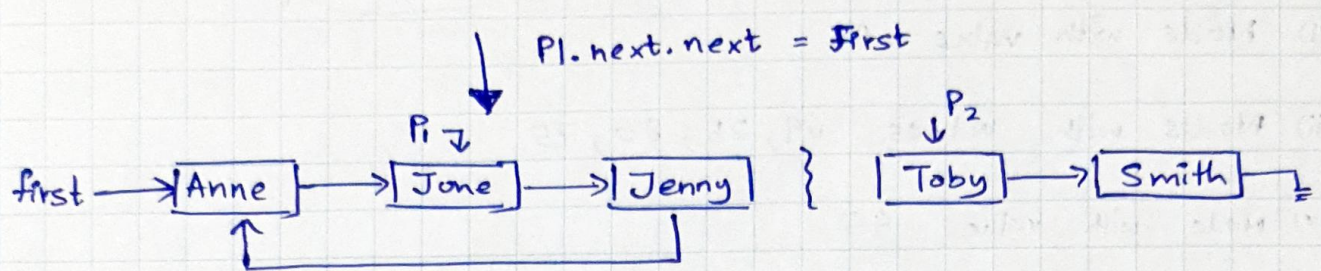 P1.next.next = First
P1 P2
first Anne Jone Jenny } Toby Smith